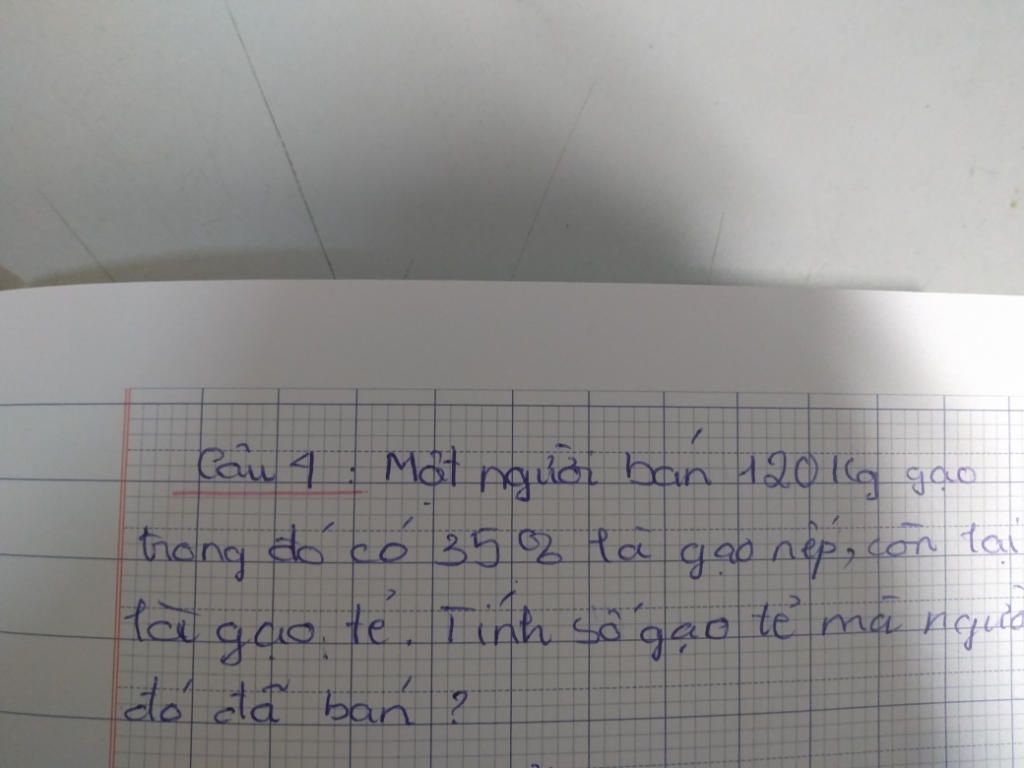 Câu 4 : Một người bán 120 Kg gạo
trong đó có 35 % là gạo nếp, còn lại
là gạo tẻ. Tính số gạo tẻ mà người
đó đã bán ?